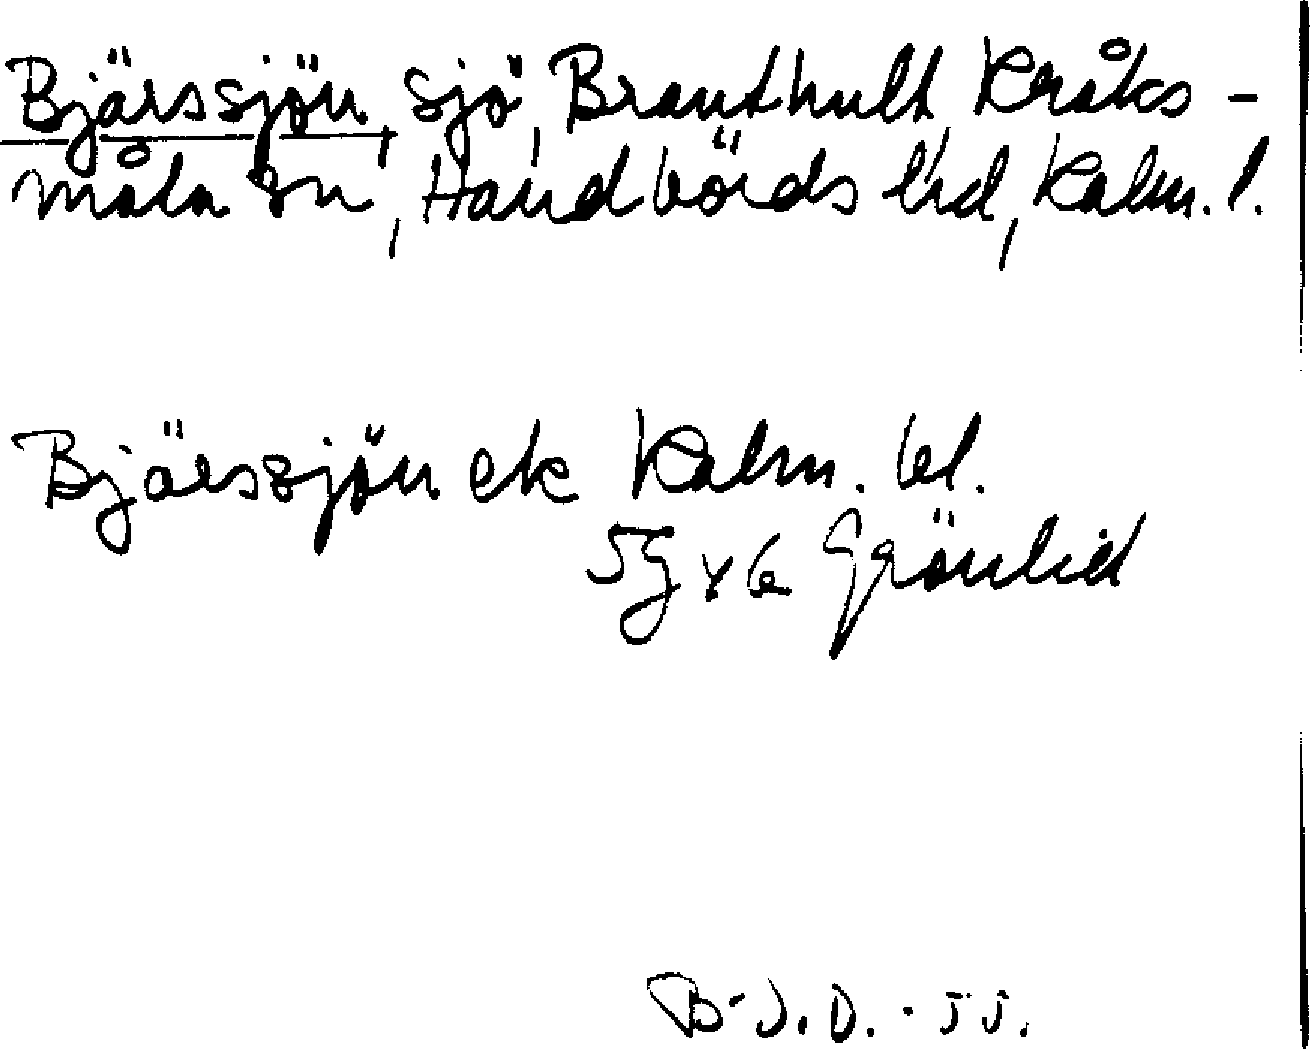 Bjärssjön, sjö, Branthult, Kråks-
måla sn, Handbörds hd, Kalm. l.
Bjärssjön ek Kalm. bl.
5G v 6 Grönlid
B-J.D. -55.